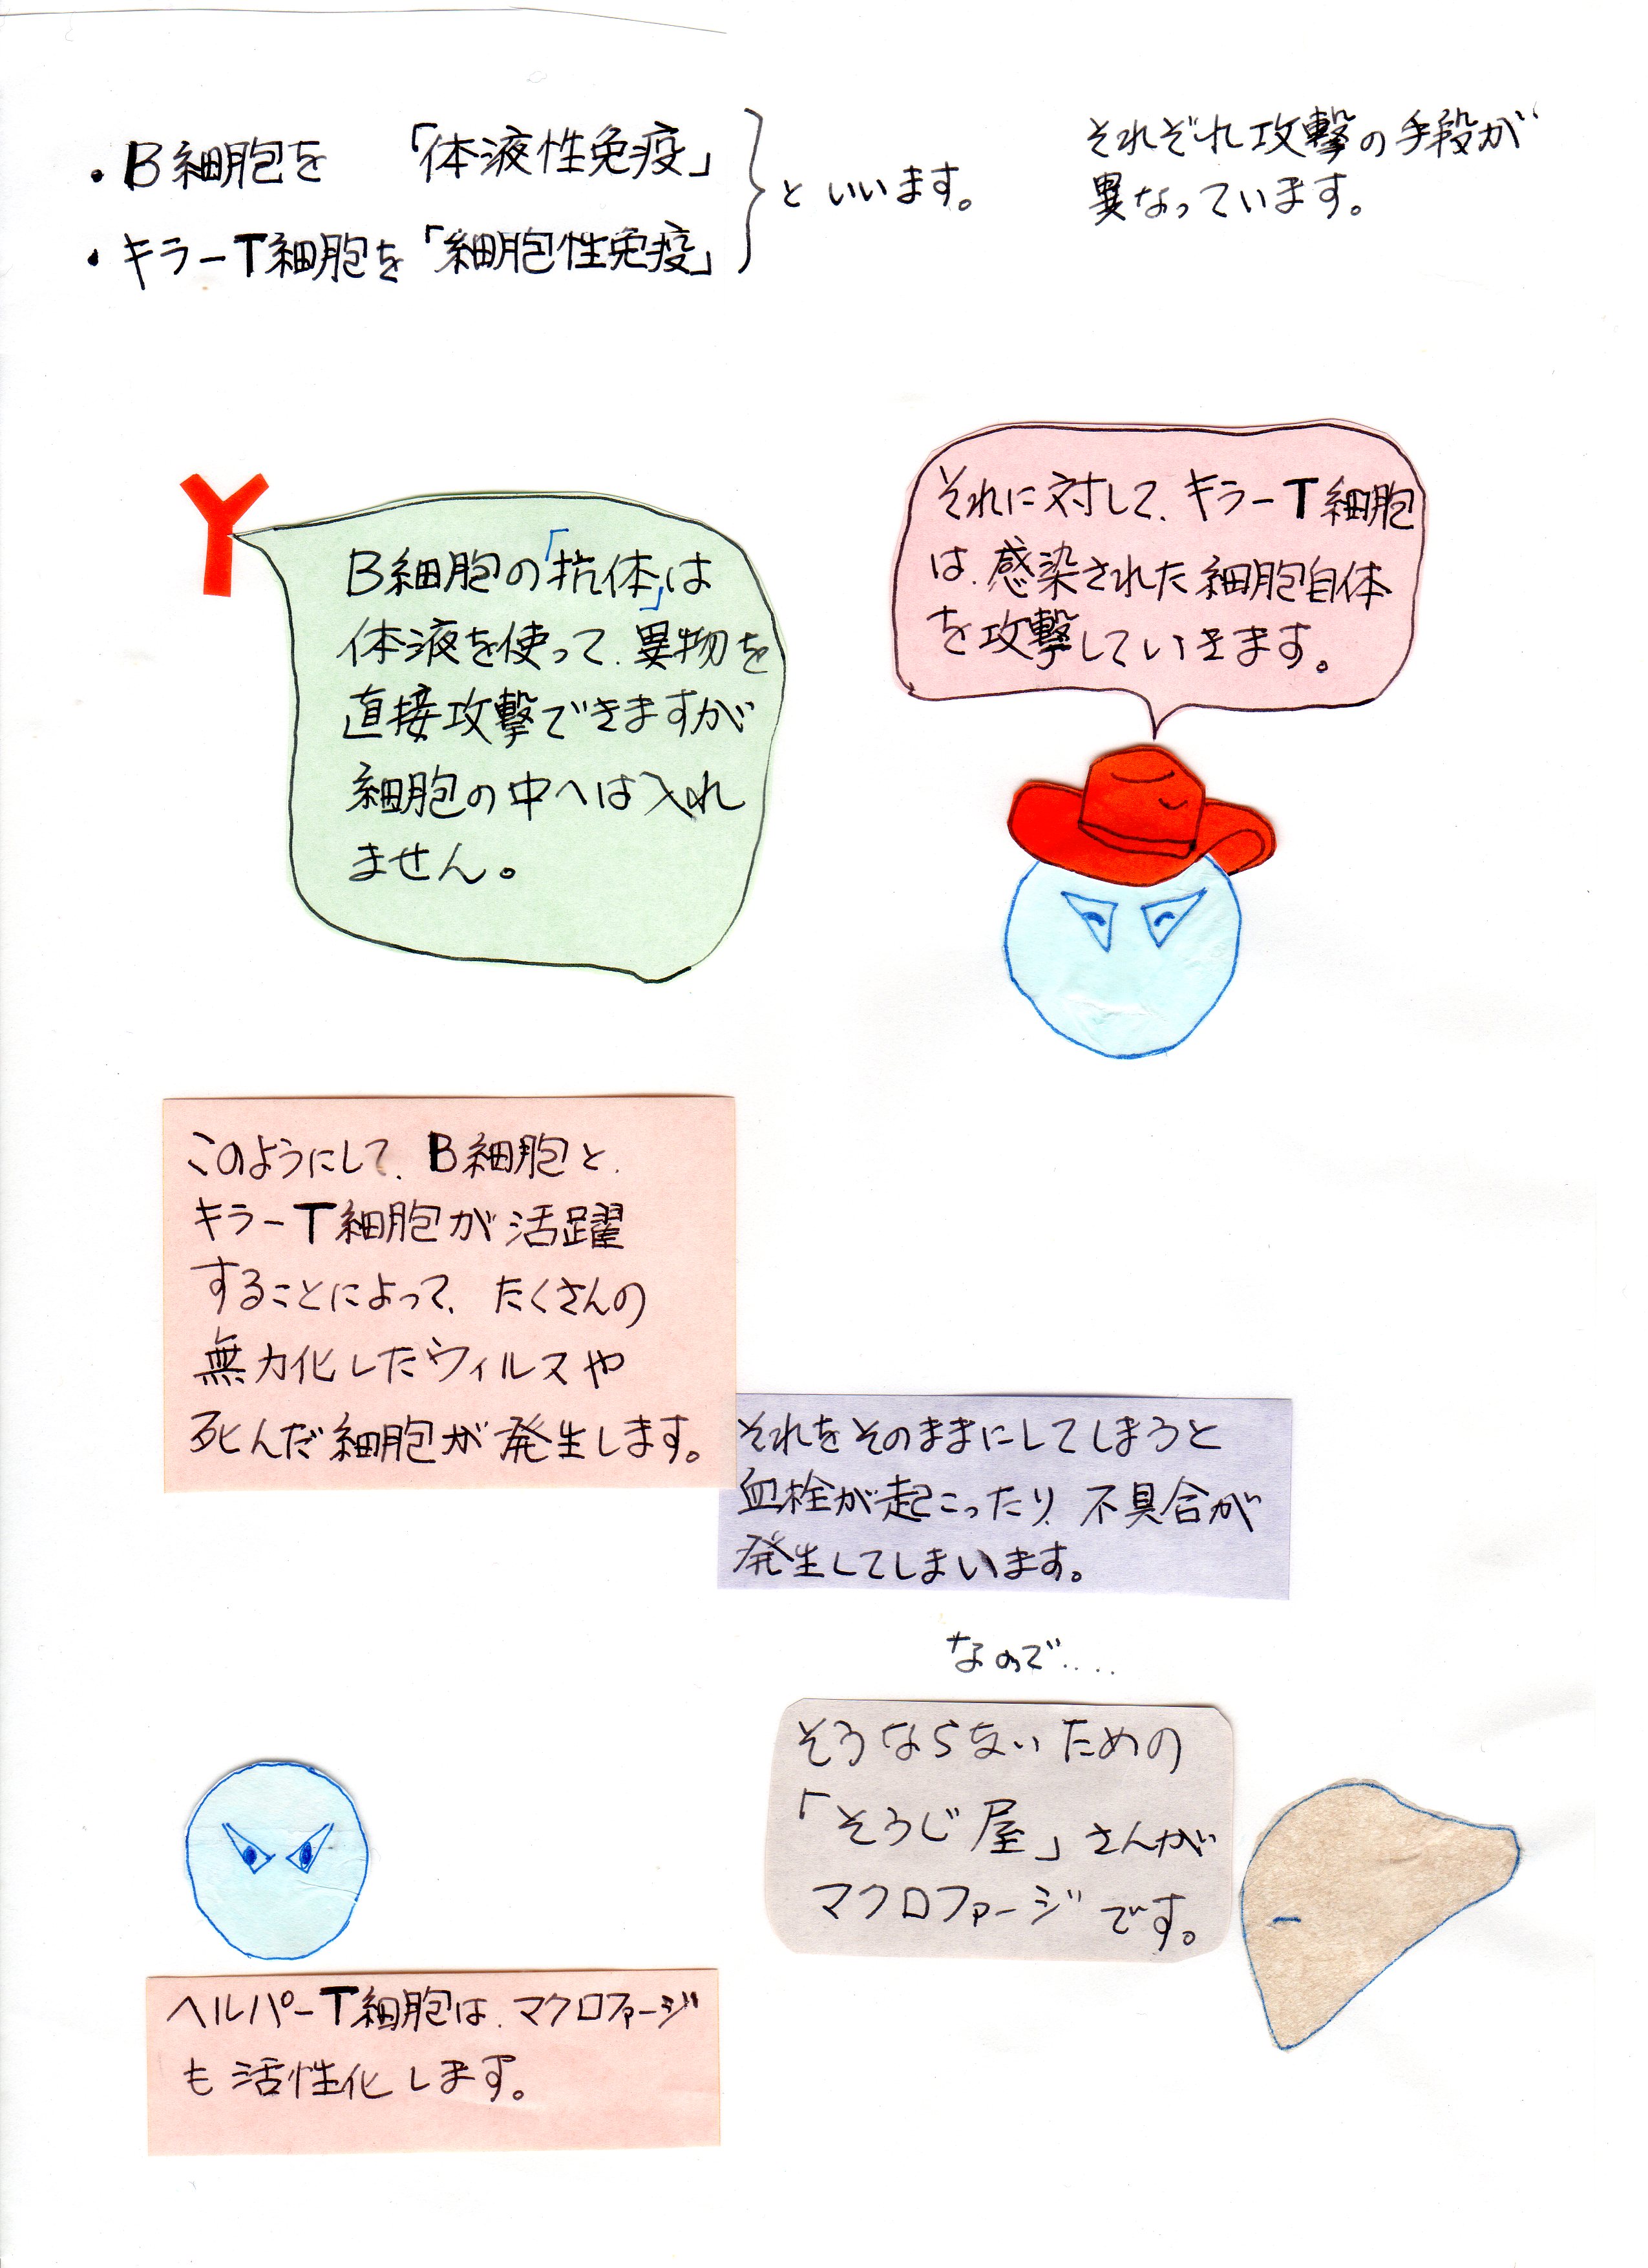 ・B細胞を 「体液性免疫」
・キラーT細胞を「細胞性免疫」
といいます。
それぞれ攻撃の手段が
異なっています。
B細胞の「抗体」は
体液を使って、異物を
直接攻撃できますが
細胞の中へは入れ
ません。
それに対して、キラーT細胞
は、感染された細胞自体
を攻撃していきます。
このようにして、B細胞と、
キラーT細胞が活躍
することによって、たくさんの
無力化したウィルスや
死んだ細胞が発生します。
それをそのままにしてしまうと
血栓が起こったり、不具合が
発生してしまいます。
なので....
そうならないための
「そうじ屋」さんが
マクロファージです。
ヘルパーT細胞は、マクロファージ
も活性化します。